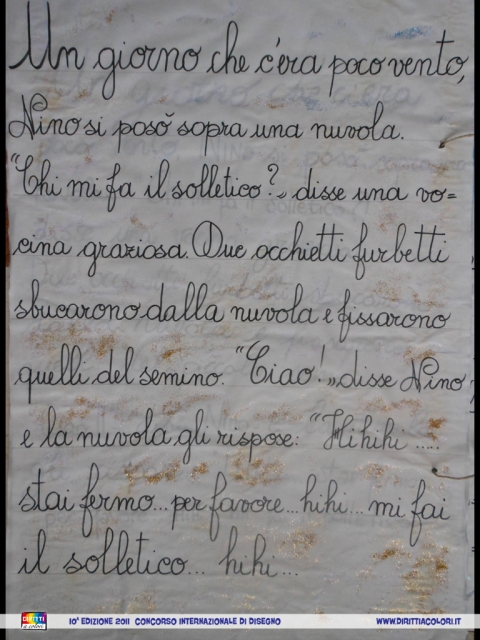 Un giorno che c'era poco vento,
Nino si posò sopra una nuvola.
"Chi mi fa il solletico?„ disse una vo=
cina graziosa. Due occhietti furbetti
sbucarono dalla nuvola e fissarono
quelli del semino. "Ciao!„ disse Nino
e la nuvola gli rispose: "Hihihi .....
stai fermo... per favore... hihi... mi fai
il solletico... hihi...
DIRITTI a colori 10ª EDIZIONE 2011 CONCORSO INTERNAZIONALE DI DISEGNO WWW.DIRITTIACOLORI.IT